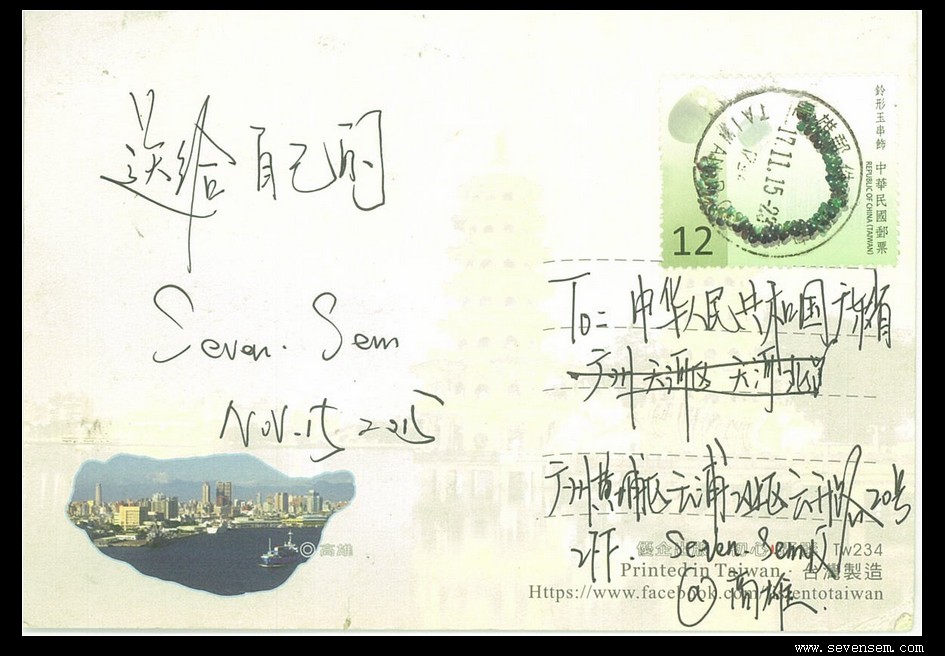 送给自己的
Seven. Sem
Nov. 15 2015
鈴形玉串飾
中華民國郵票
REPUBLIC OF CHINA (TAIWAN)
12
高雄郵
TAIWAN
17.11.15-2
To: 中华人民共和国广东省
广州天河区天河北
广州黄埔区云埔工业区云开路20号
2FF. Seven Sem 收
@高雄.
◎高雄
Tw234
Printed in Taiwan · 台灣製造
Https://www.facebook.com/ entotaiwan
www.sevensem.com